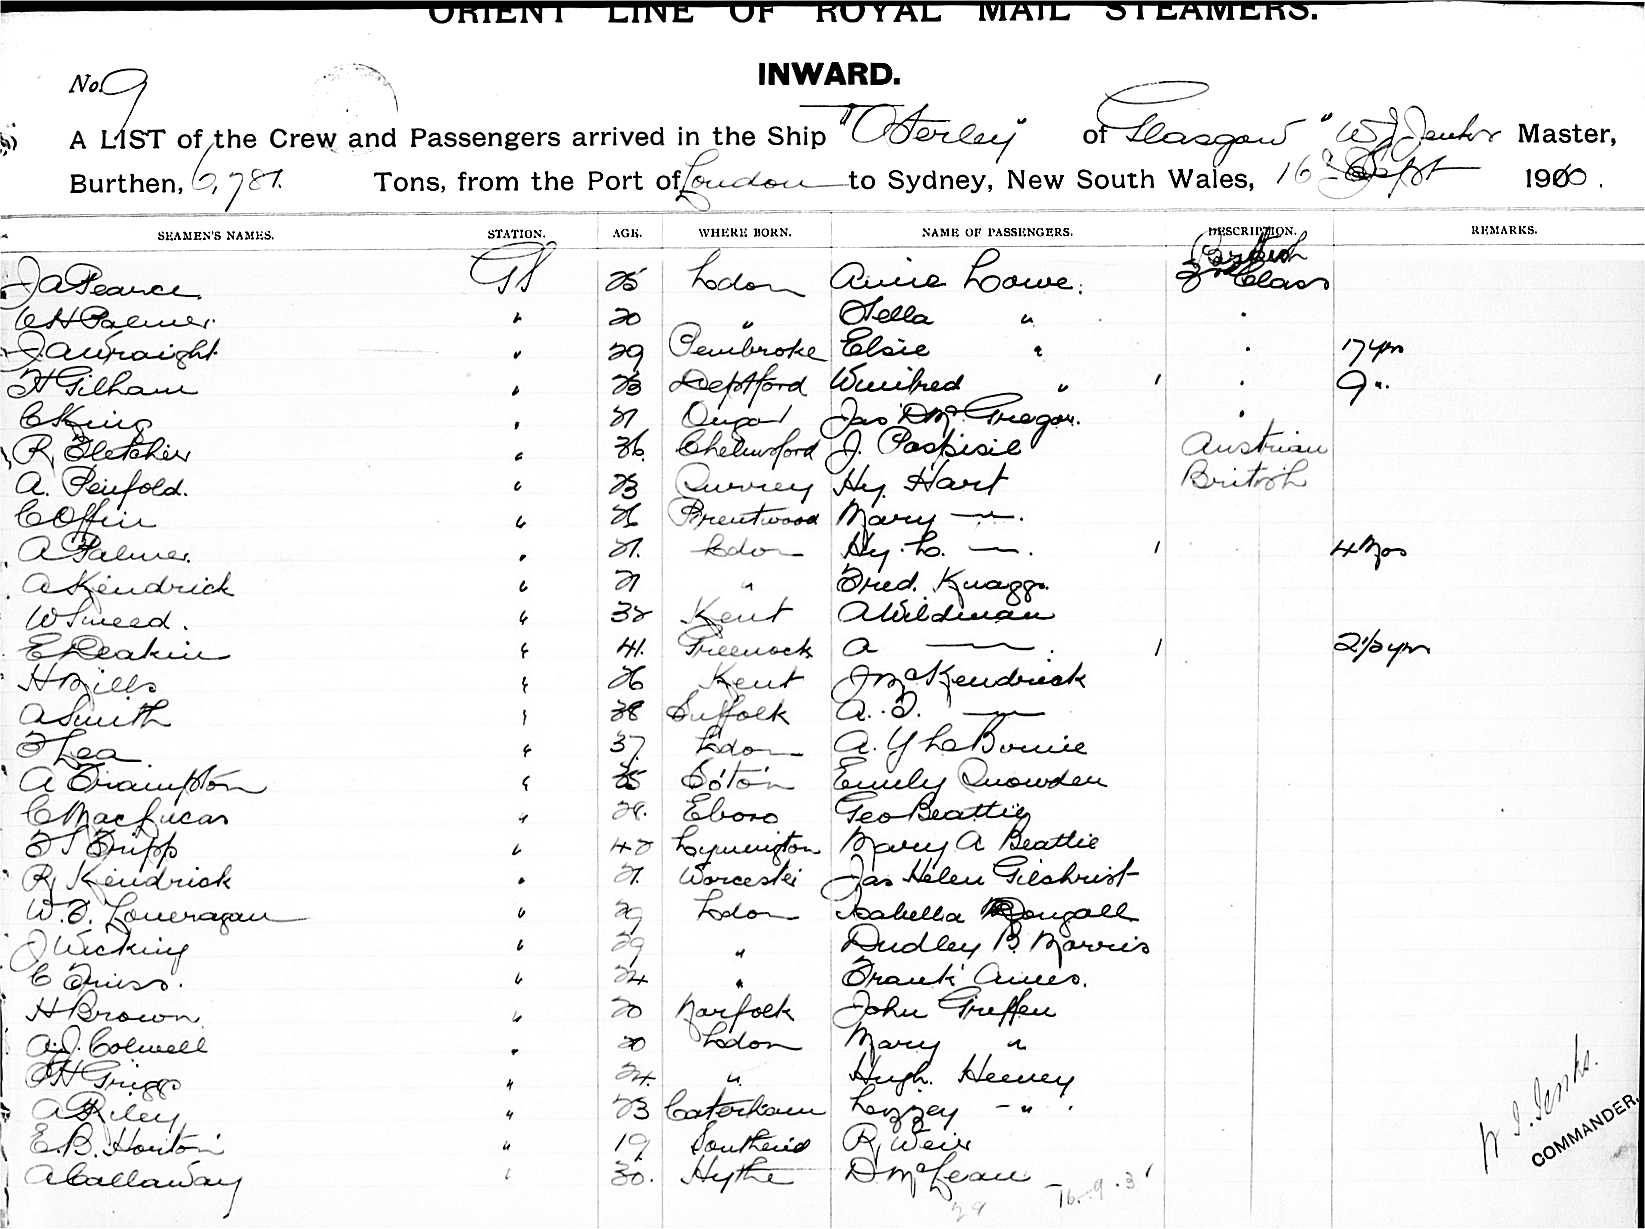 ORIENT LINE OF ROYAL MAIL STEAMERS.
INWARD.
No. 9
A LIST of the Crew and Passengers arrived in the Ship "Osterley" of Glasgow " W J Jenks Master,
Burthen, 6,781. Tons, from the Port of London to Sydney, New South Wales, 16 Sept 1910.
SEAMEN'S NAMES. STATION. AGE. WHERE BORN. NAME OF PASSENGERS. DESCRIPTION. REMARKS.
British
J A Pearce. GS 25 Ldon Annie Lowe. 3rd Class
C H Palmer. " 20 " Stella "
J. A Wraight. " 29 Pembroke Elsie " 17 yrs
H Gilham " 23 Deptford Winifred " 1 9 ".
C King " 21 Ongar Jas D McGregor.
R. Fletcher " 26. Chelmsford J. Pospisil Austrian
A. Penfold. " 23 Surrey Hy. Hart British
C Offin " 26 Brentwood Mary — " —.
A Palmer. " 21. Ldon Hy. L. — " —. 1 4 Mos
A Kendrick " 21 " Fred. Knaggs.
W Sneed. " 32 Kent A Wildman
E Deakin " 41. Greenock A — " — 1 2 1/2 yrs
H Mills " 26 Kent J McKendrick
A Smith " 28 Suffolk A. F. — " —
F Lea " 37. Ldon A. Y LeBonie
A Frampton " 25 So'ton Emily Snowden
C MacLucas " 28. Eboro Geo Beattie
F S Tripp " 42 Lymington Mary A Beattie
R Kendrick " 21. Worcester Jas Helen Gilchrist
W. F. Loneragan " 29 Ldon Isabella McDougall
J Wicking " 29 " Dudley B. Morris
C Friss. " 24 " Frank Ames.
H Brown " 20 Norfolk John Griffen
A. J. Colwell " 20 Ldon Mary "
F H Griggs " 24. " Hugh. Heeney
A Riley " 23 Caterham Lizzey — " — .
E. B. Horton " 19 Southend R, Weir
A Callaway " 30. Hythe D McLean
29 16. 9. 3 1
W. J. Jenks.
COMMANDER.